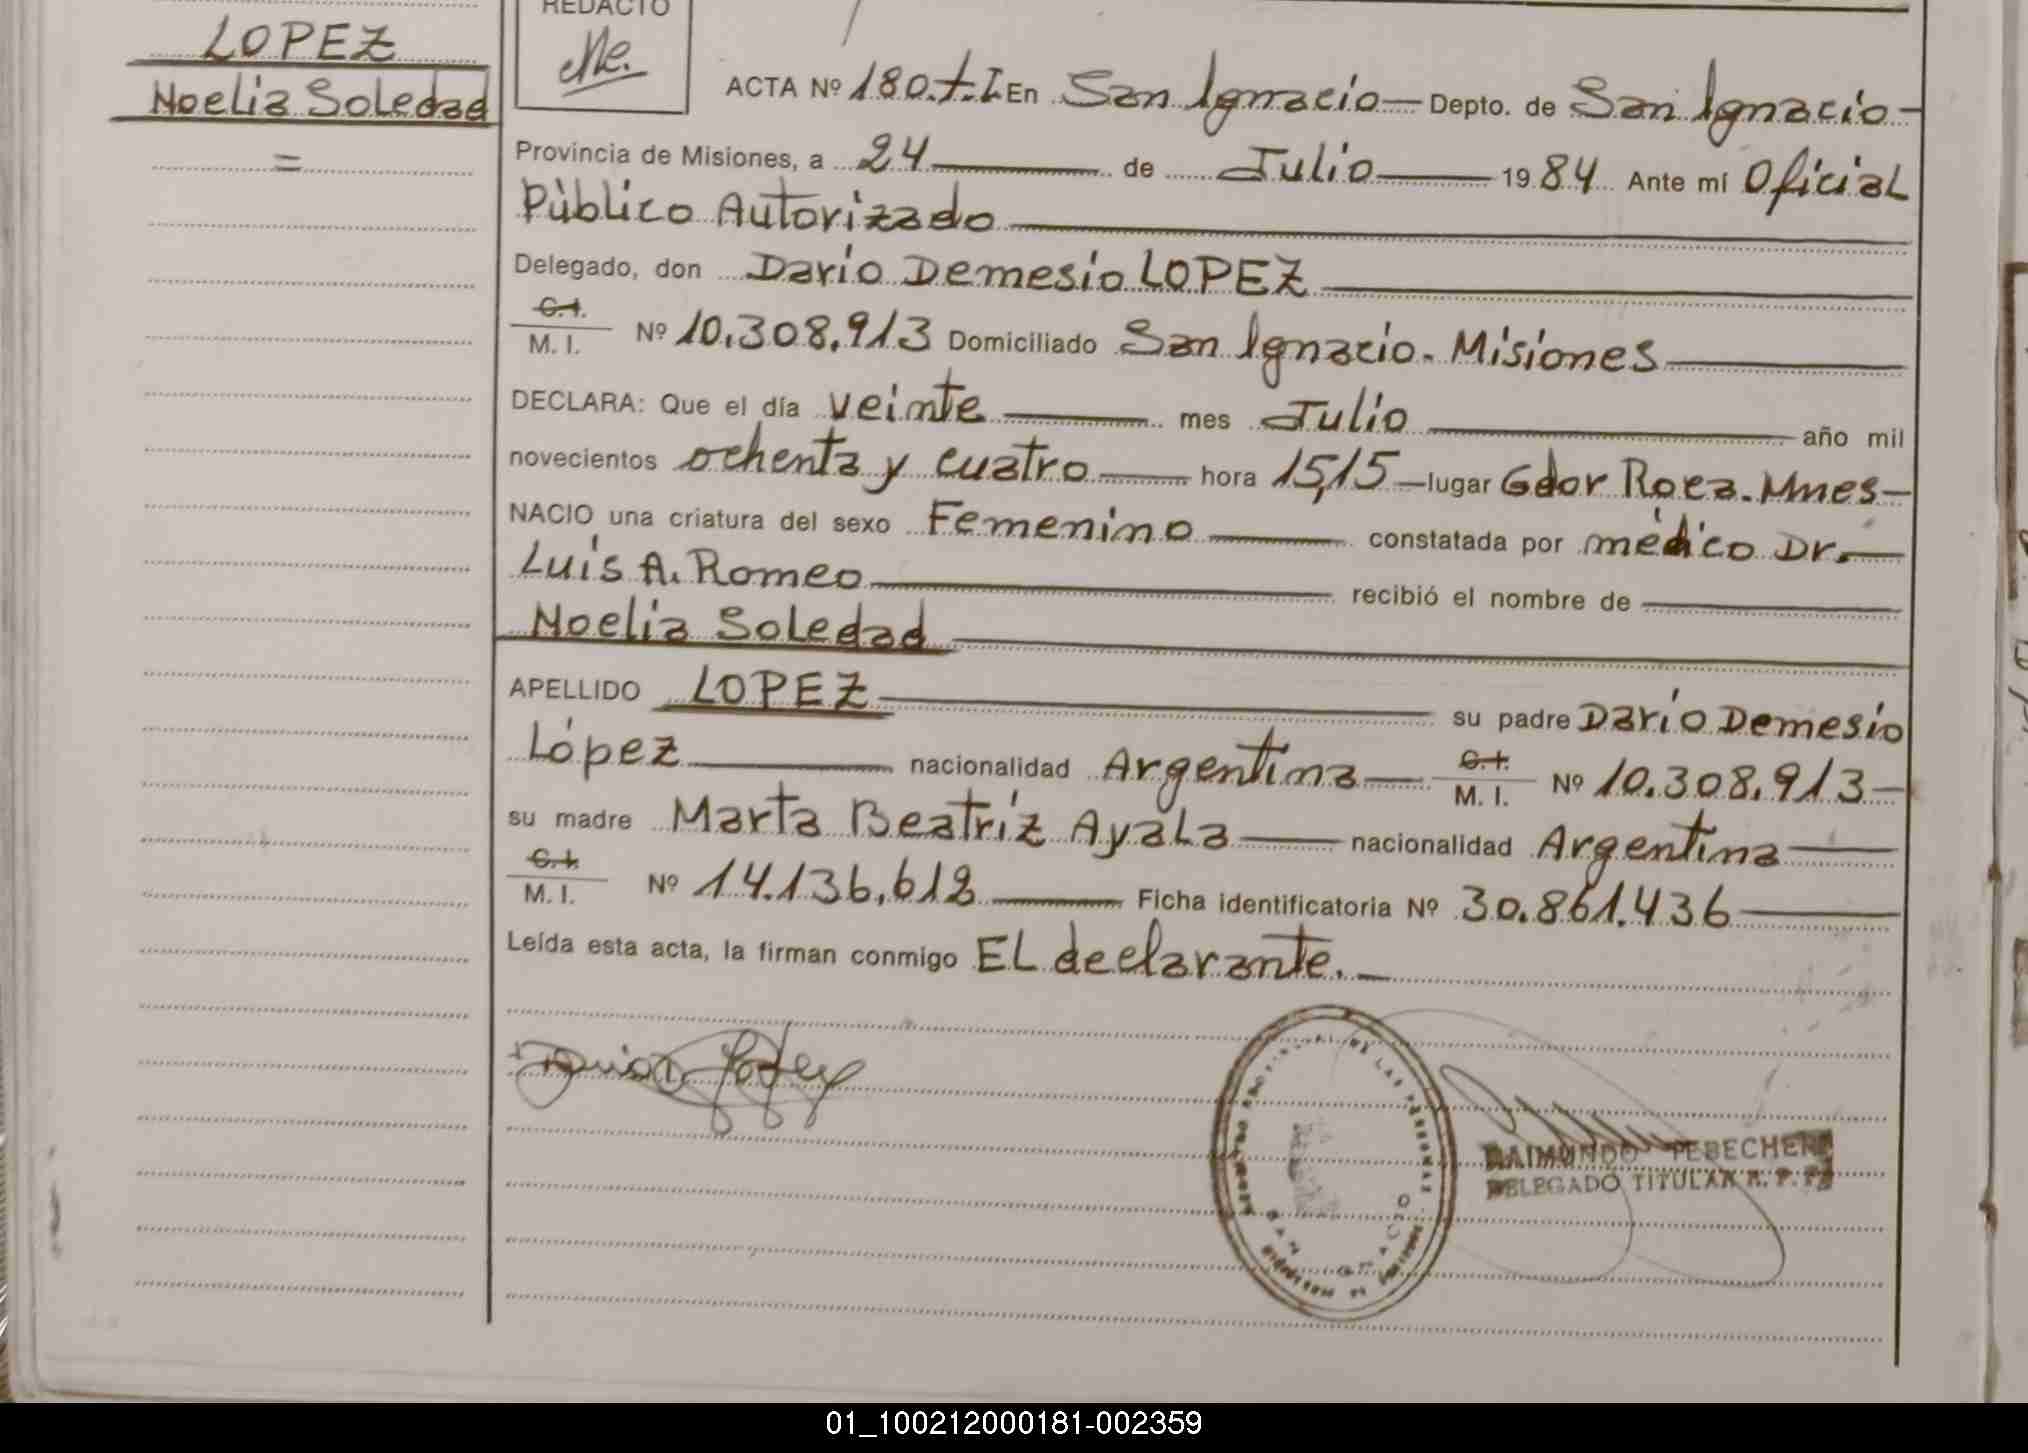 LOPEZ
Noelia Soledad
=
REDACTO
ACTA Nº 180.t.I En San Ignacio Depto. de San Ignacio
Provincia de Misiones, a 24 de Julio 1984 Ante mí Oficial
Público Autorizado
Delegado, don Darío Demesio LOPEZ
C.I.
M. I. Nº 10.308.913 Domiciliado San Ignacio. Misiones
DECLARA: Que el día veinte mes Julio año mil
novecientos ochenta y cuatro hora 15,15 lugar Gdor Roca. Mnes
NACIO una criatura del sexo Femenino constatada por médico Dr.
Luis A. Romeo recibió el nombre de
Noelia Soledad
APELLIDO LOPEZ su padre Darío Demesio
López nacionalidad Argentina C.I. M. I. Nº 10.308.913
su madre Marta Beatríz Ayala nacionalidad Argentina
C.I.
M. I. Nº 14.136.612 Ficha identificatoria Nº 30.861.436
Leída esta acta, la firman conmigo EL declarante.
DE LAS PERSONAS
SAN IGNACIO
RAIMUNDO
DELEGADO TITULAR R. P.
01_100212000181-002359